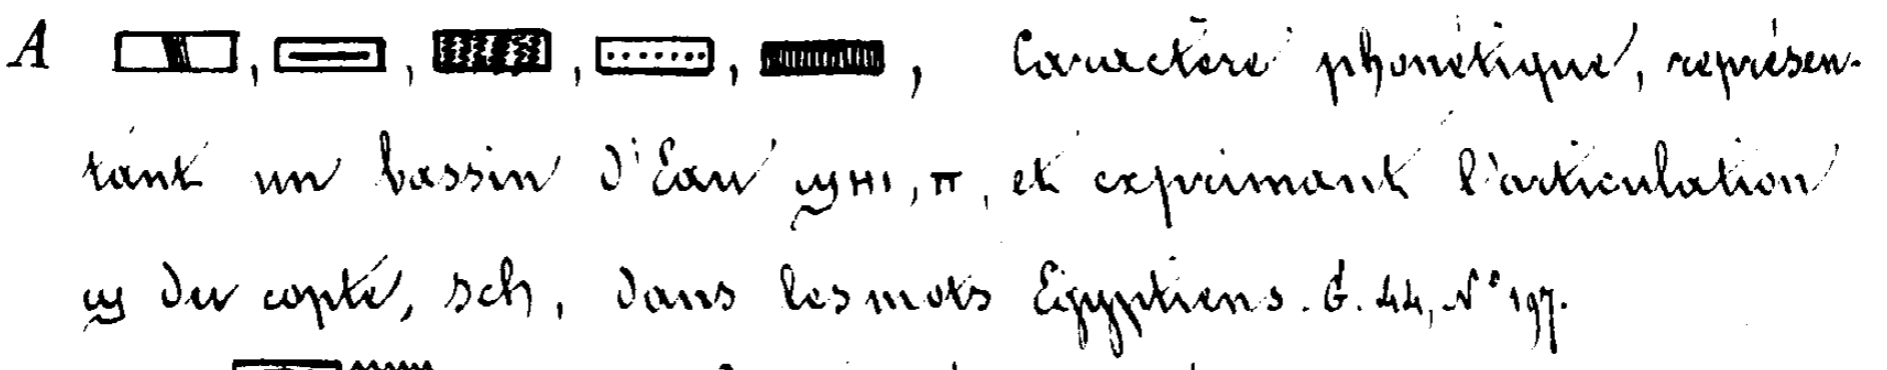 A , , , , , Caractère phonétique, représen-
tant un bassin d'Eau ϣHI, π, et exprimant l'articulation
ϣ du copte, sch, dans les mots Egyptiens. G. 44, N° 197.